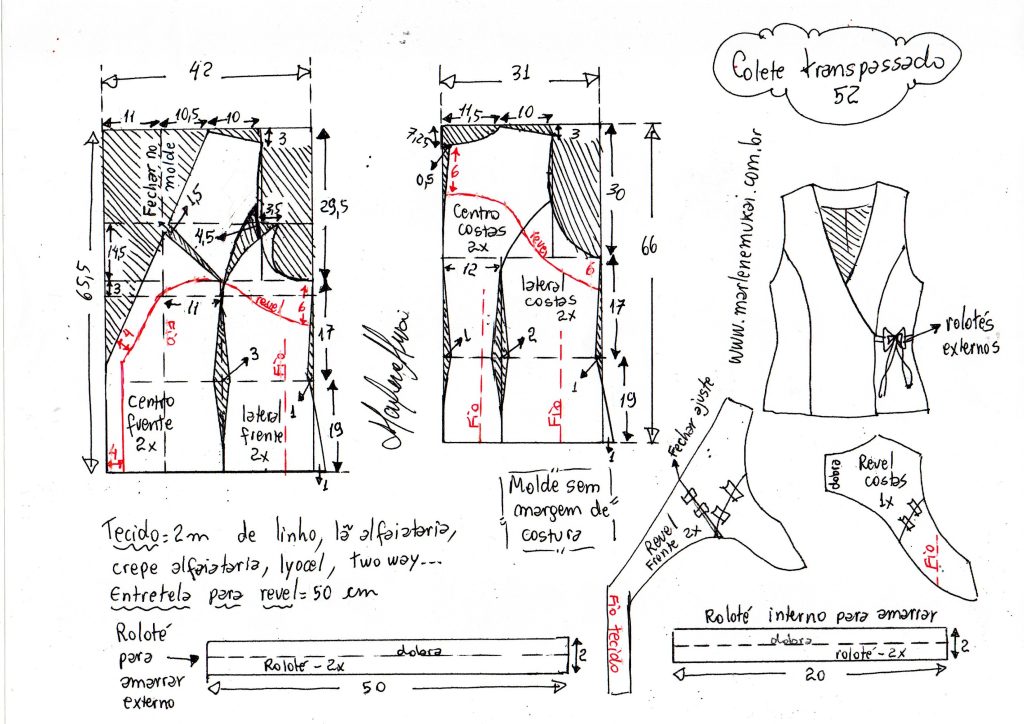 Colete transpassado
52
42
11
10,5
10
3
Fechar no
molde
1,5
3,5
4,5
29,5
14,5
65,5
3
11
revel
6
4
Fio
Fio
17
3
1
Centro
frente
2x
lateral
frente
2x
19
4
1
31
11,5
10
7,25
3
0,5
6
30
Centro
costas
2x
revel
66
12
6
lateral
costas
2x
17
1
2
Fio
Fio
1
19
1
www.marlenemukai.com.br
rolotés
externos
Marlene Mukai
Molde sem
margem de
costura
Tecido = 2m de linho, lã alfaiataria,
crepe alfaiataria, lyocel, two way...
Entretela para revel = 50 cm
Fechar ajuste
Revel
Frente 2x
Fio tecido
dobra
Revel
costas
1x
Fio
Roloté
para
amarrar
externo
dobra
Roloté - 2x
2
50
Roloté interno para amarrar
dobra
roloté - 2x
2
20